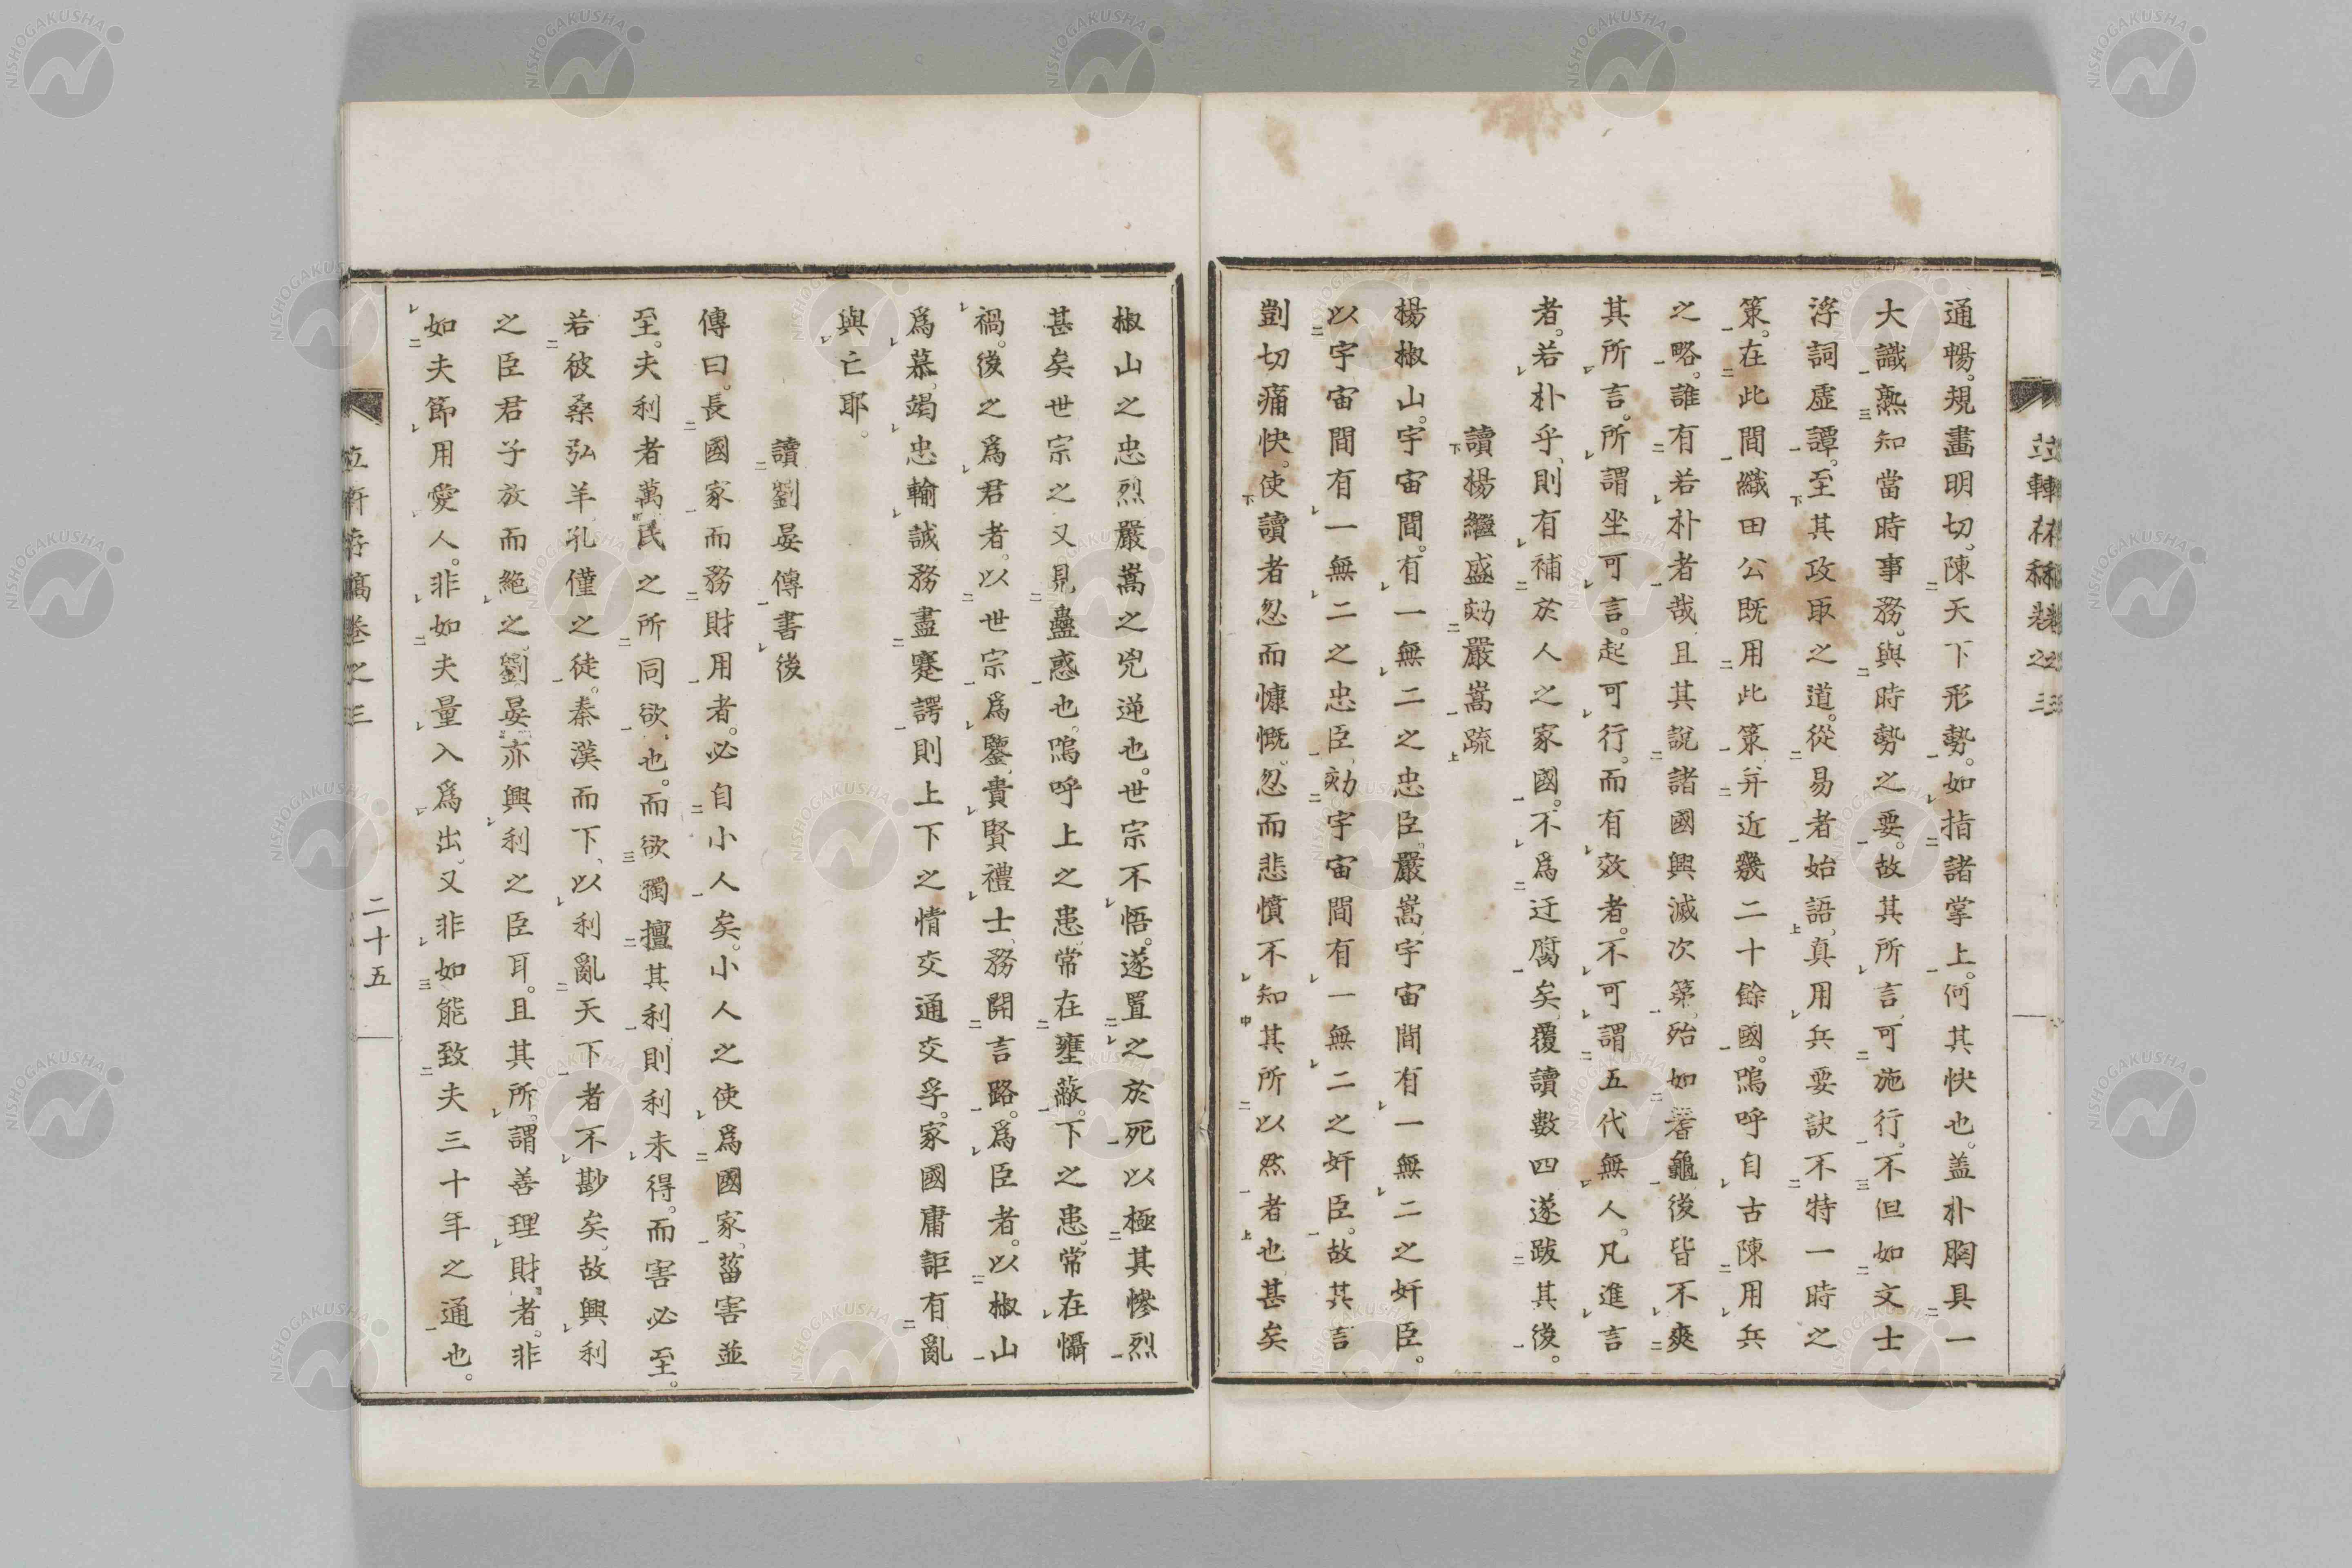 通暢。規畫明切。陳天下形勢。如指諸掌上。何其快也。蓋朴胸具一
大識熟知當時事務。與時勢之要。故其所言、可施行。不但如文士
浮詞虛譚。至其攻取之道。從易者始語、真用兵要訣不特一時之
策。在此間織田公既用此策、并近畿二十餘國。嗚呼自古陳用兵
之略。誰有若朴者哉、且其說諸國興滅次第。殆如蓍龜後皆不爽
其所言。所謂坐可言。起可行。而有效者。不可謂五代無人。凡進言
者。若朴乎、則有補於人之家國。不爲迂腐矣、覆讀數四遂跋其後。
讀楊繼盛劾嚴嵩疏
楊椒山。宇宙間。有一無二之忠臣。嚴嵩、宇宙間有一無二之奸臣。
以宇宙間有一無二之忠臣、劾宇宙間有一無二之奸臣。故其言
剴切痛快。使讀者忽而慷慨。忽而悲憤不知其所以然者也、甚矣
椒山之忠烈嚴嵩之兇逆也。世宗不悟。遂置之於死以極其慘烈
甚矣世宗之又見蠱惑也。嗚呼上之患。常在壅蔽。下之患。常在懾
禍。後之爲君者。以世宗爲鑒、貴賢禮士、務開言路。爲臣者。以椒山
爲慕、竭忠輸誠務盡蹇諤則上下之情交通交孚。家國庸詎有亂
與亡耶。
讀劉晏傳書後
傳曰。長國家而務財用者。必自小人矣。小人之使爲國家。菑害並
至。夫利者萬民之所同欲也。而欲獨擅其利、則利未得。而害必至。
若彼桑弘羊、孔僅之徒。秦漢而下、以利亂天下者不尠矣。故興利
之臣君子放而絕之。劉晏亦興利之臣耳。且其所謂善理財者。非
如夫節用愛人。非如夫量入爲出。又非如能致夫三十年之通也。
二十五